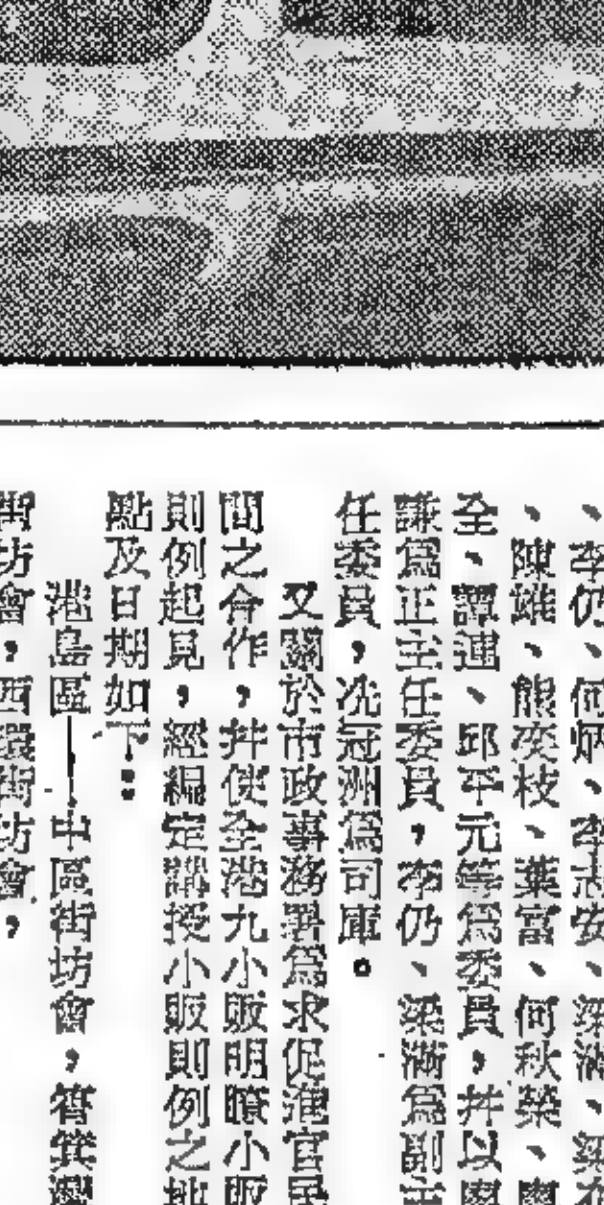 、李仍、何炳、李志安、梁滿、梁
、陳雄、熊奕枝、葉富、何秋榮、
全、譚連、邱平元等為委員，幷以
謙為正主任委員，李仍、梁滿為副主
任委員，冼冠洲為司庫。
又關於市政事務署為求促進官民
間之合作，幷使全港九小販明瞭小販
則例起見，經編定講授小販則例之地
點及日期如下：
港島區——中區街坊會，筲箕灣
街坊會，西環街坊會，